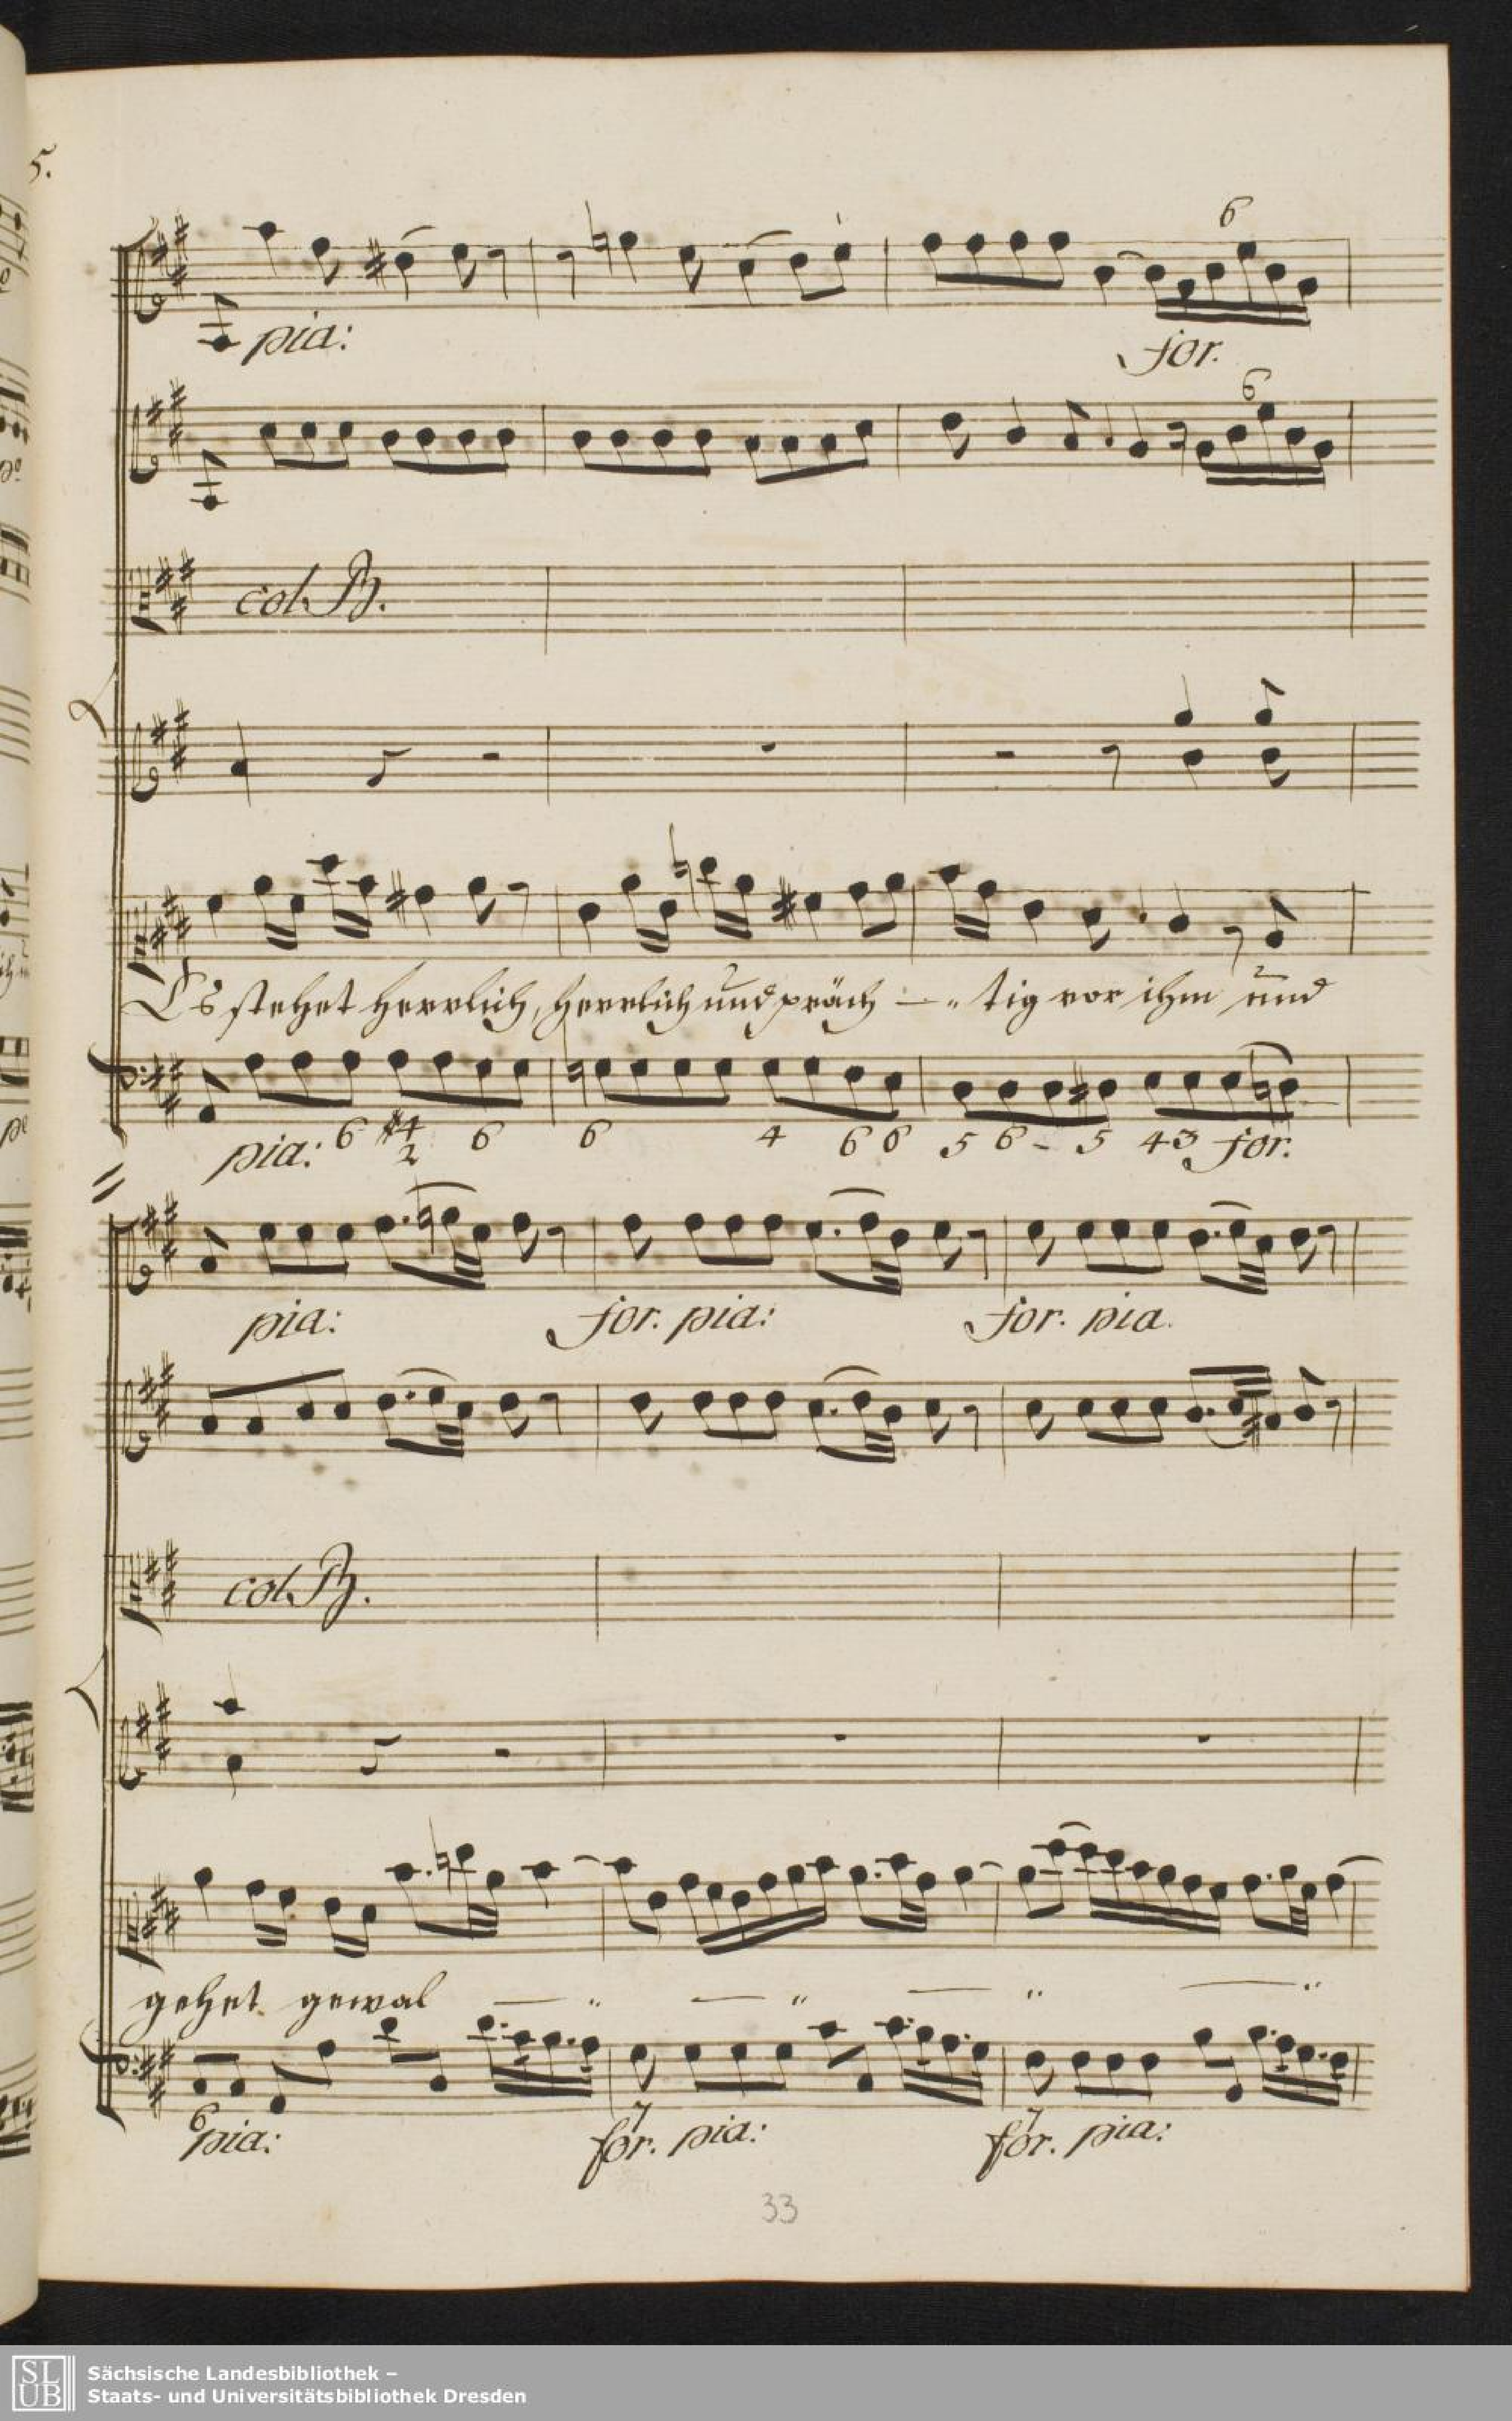 5.
6
pia: for.
6
col B.
Es stehet herrlich, herrlich und präch — „ tig vor ihm und
6 #4 2 6 6 4 6 6 5 6 - 5 4 3
pia: for.
pia: for. pia: for. pia.
col B.
gehet gewal — „ — „ — „ — „
6 7 7
pia: for. pia: for. pia:
33
SLUB
Sächsische Landesbibliothek –
Staats- und Universitätsbibliothek Dresden